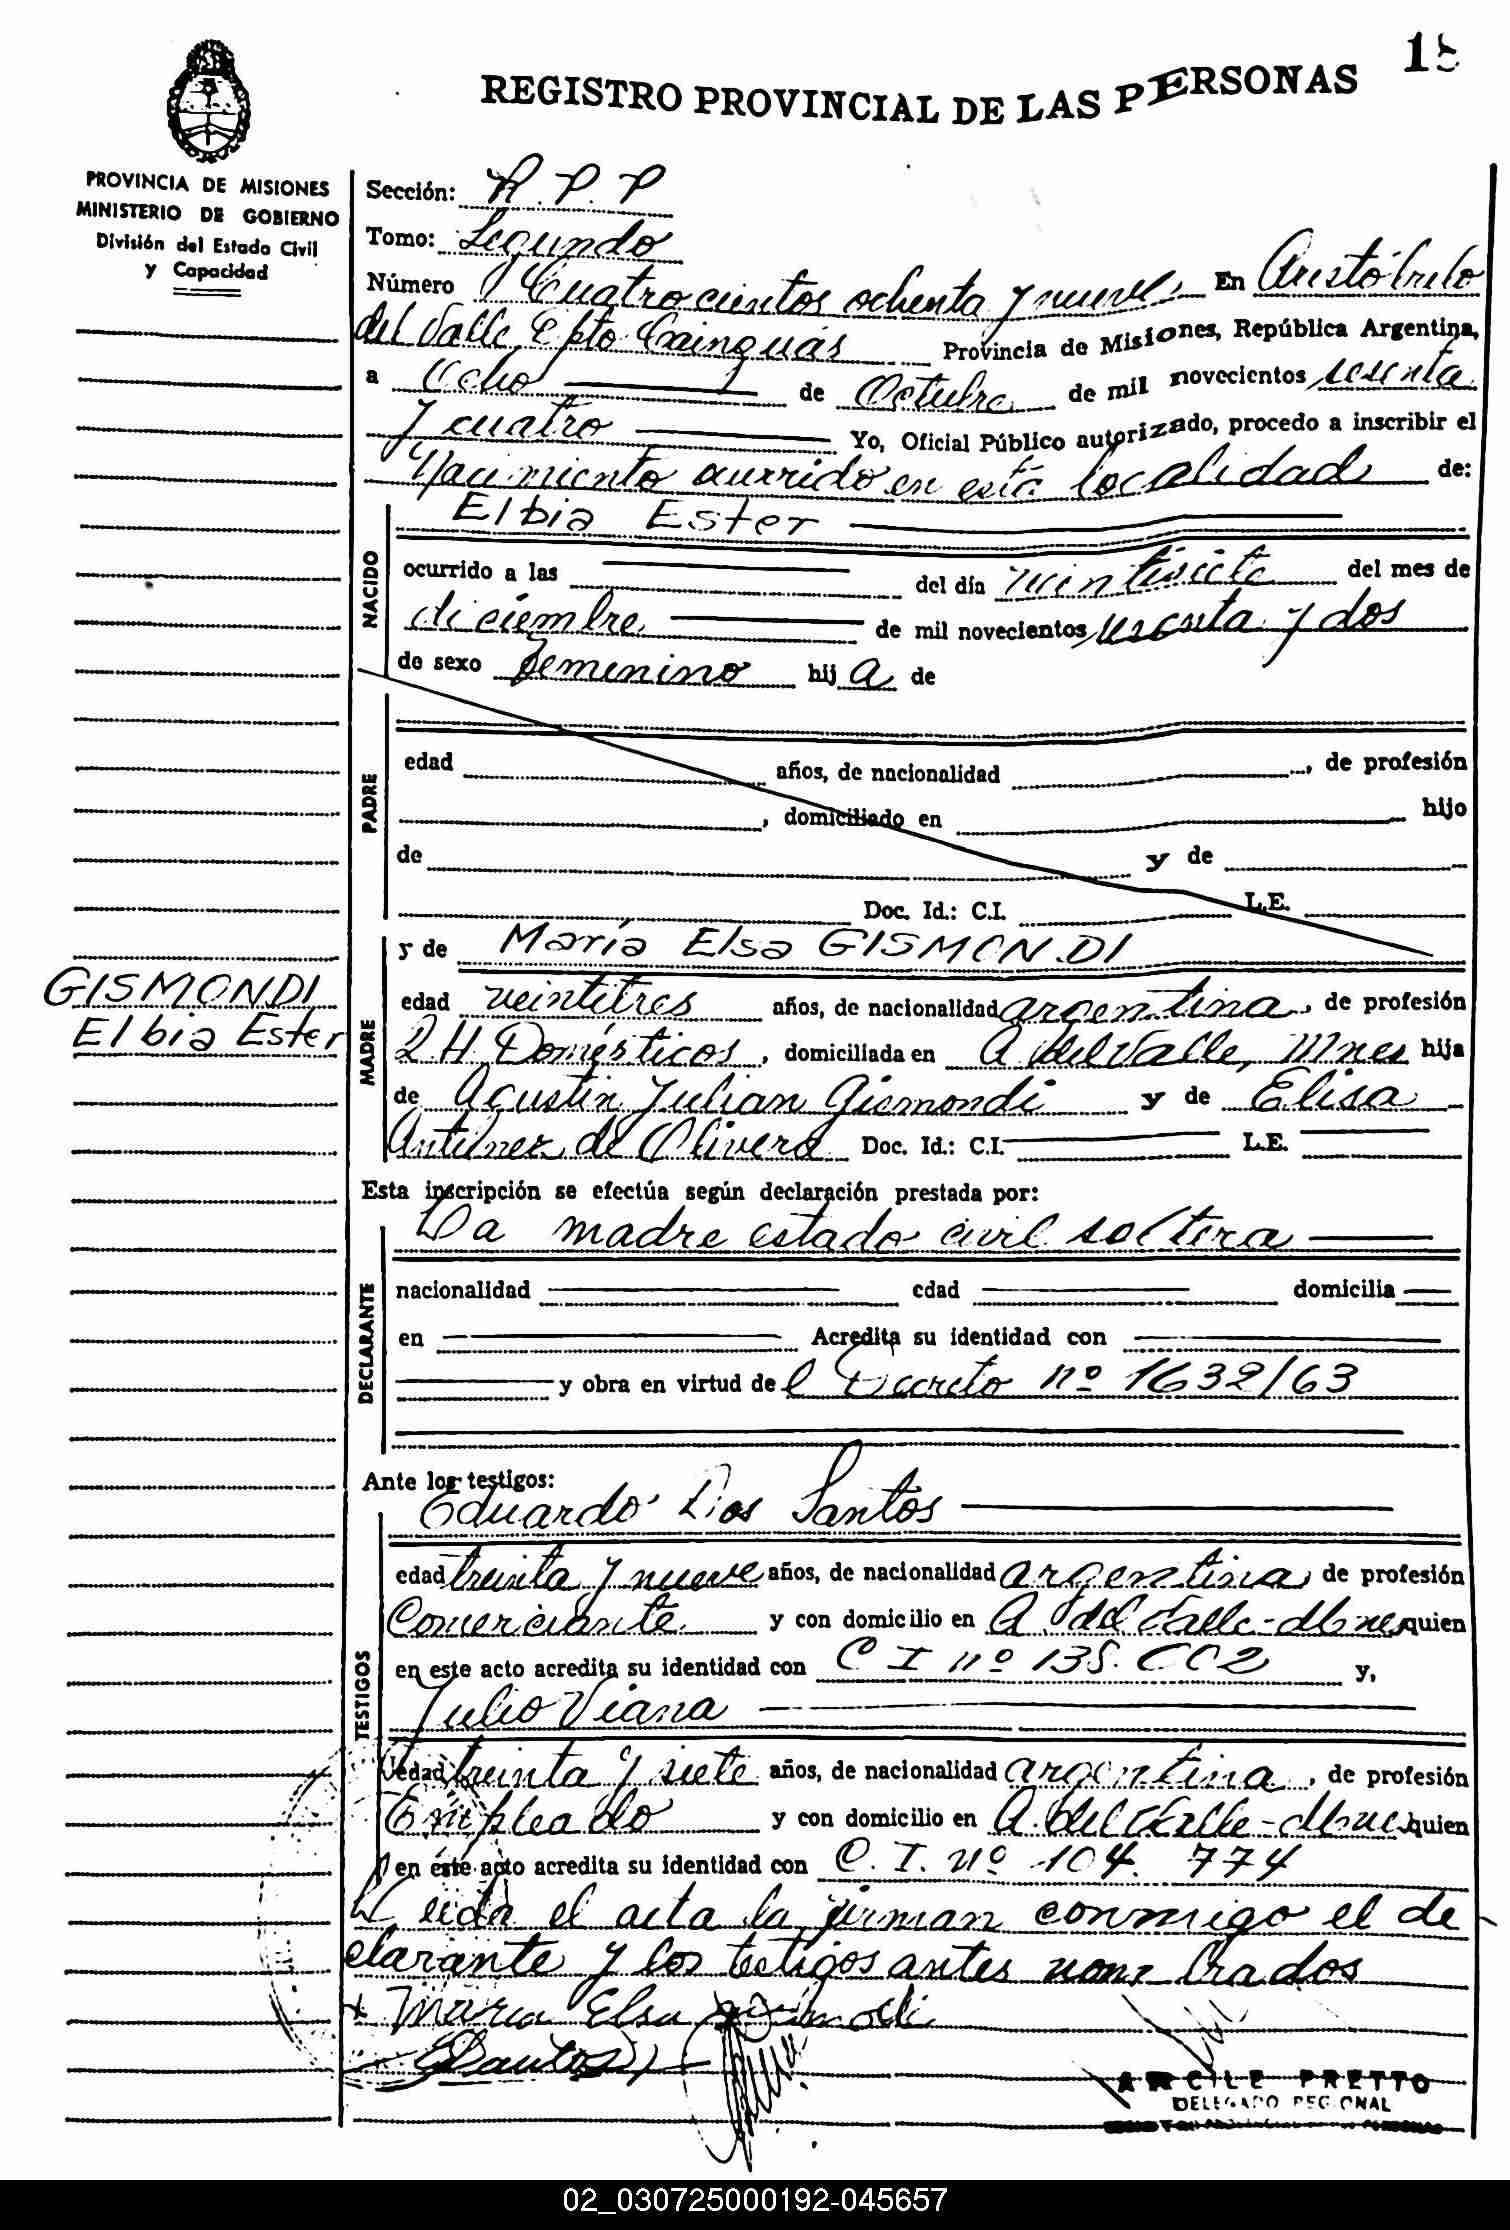 REGISTRO PROVINCIAL DE LAS PERSONAS
PROVINCIA DE MISIONES
MINISTERIO DE GOBIERNO
División del Estado Civil
y Capacidad
Sección: R. P. P
Tomo: Segundo
Número Cuatrocientos ochenta y nueve En Aristóbulo
del Valle Dpto Cainguás Provincia de Misiones, República Argentina,
a Ocho de Octubre de mil novecientos sesenta
y cuatro Yo, Oficial Público autorizado, procedo a inscribir el
Nacimiento ocurrido en esta localidad de:
NACIDO
Elbia Ester
ocurrido a las del día veintisiete del mes de
diciembre de mil novecientos sesenta y dos
de sexo femenino hija de
PADRE
edad años, de nacionalidad , de profesión
, domiciliado en hijo
de y de
Doc. Id.: C.I. L.E.
MADRE
y de María Elsa GISMONDI
GISMONDI
Elbia Ester
edad veintitres años, de nacionalidad argentina, de profesión
Domésticos, domiciliada en A del Valle, Mnes hija
de Agustin Julian Gismondi y de Elisa
Antunez de Olivera Doc. Id.: C.I. L.E.
Esta inscripción se efectúa según declaración prestada por:
DECLARANTE
La madre estado civil soltera
nacionalidad edad domicilia
en Acredita su identidad con
y obra en virtud del Decreto nº 1632/63
Ante los testigos:
TESTIGOS
Eduardo Dos Santos
edad treinta y nueve años, de nacionalidad argentina, de profesión
Comerciante y con domicilio en A. del Valle - Mnes quien
en este acto acredita su identidad con C I nº 138.002 y,
Julio Viana
edad treinta y siete años, de nacionalidad argentina, de profesión
Empleado y con domicilio en A. del Valle - Mnes quien
en éste acto acredita su identidad con C. I. nº 104.774
Leida el acta la firman conmigo el de
clarante y los testigos antes nombrados
x Maria Elsa
DSantos
ARCILE PRETTO
DELEGADO REGIONAL
02_030725000192-045657